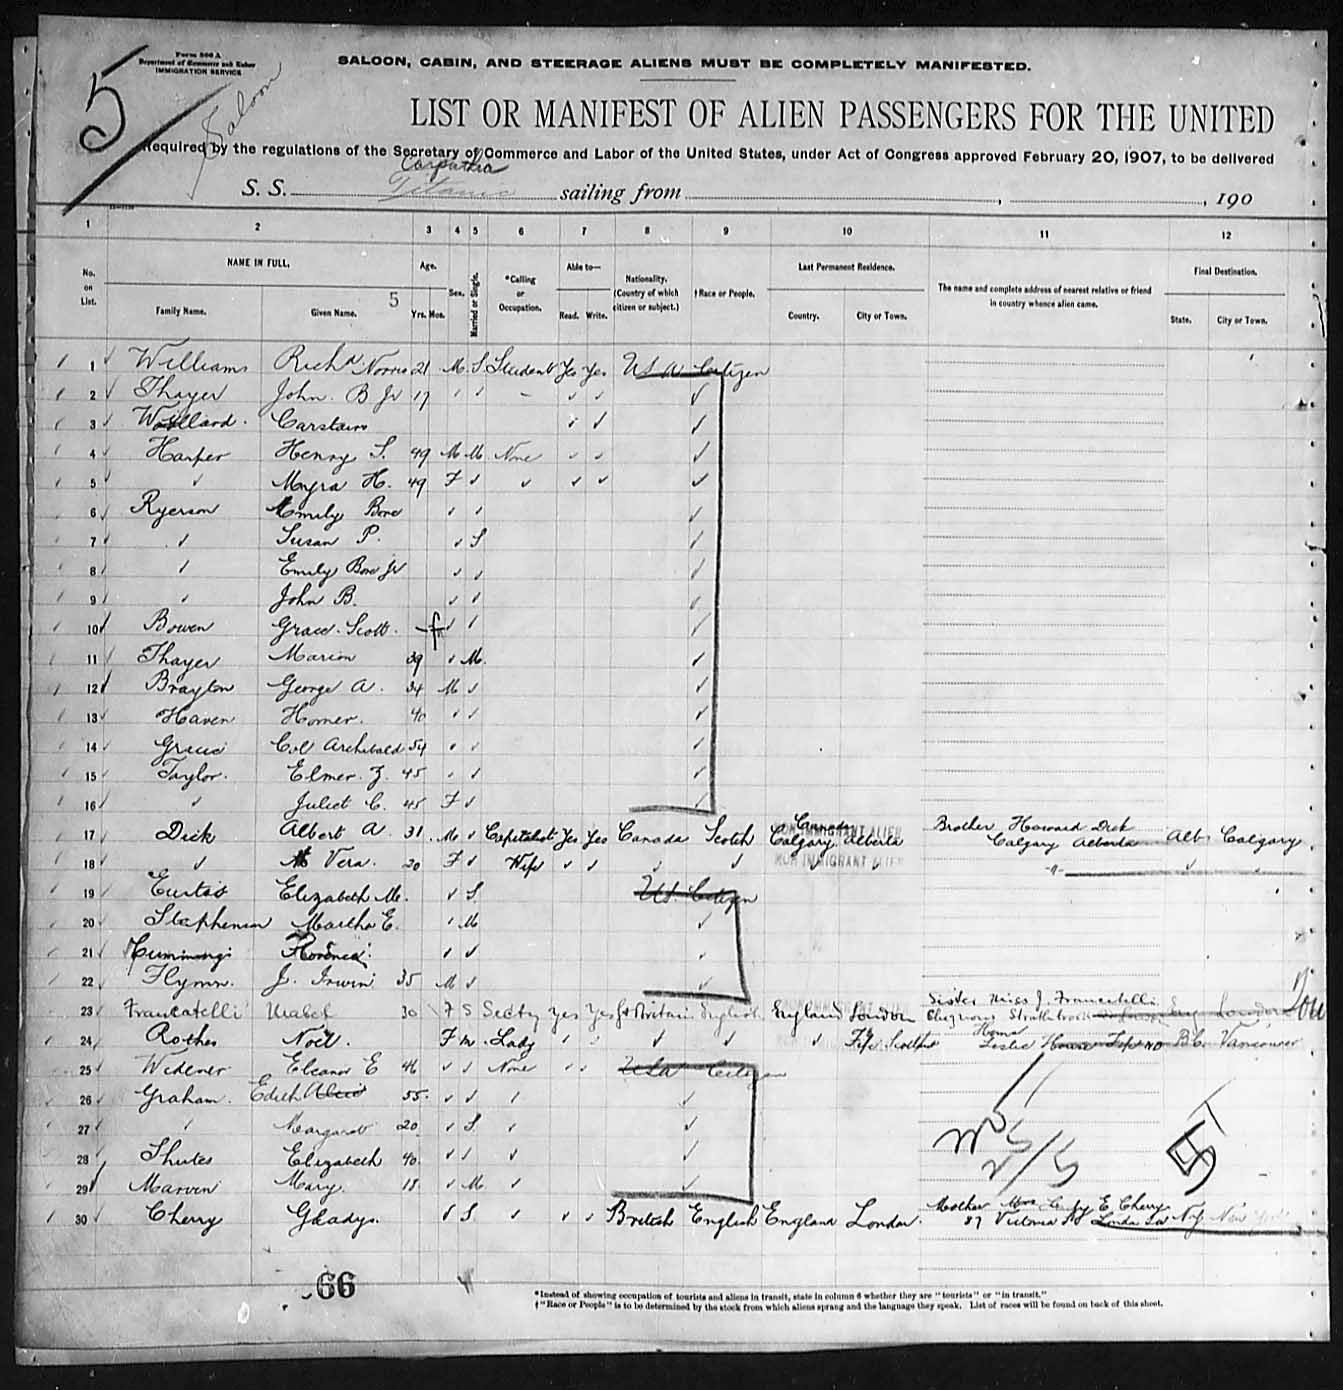 5
Form 500 A
Department of Commerce and Labor
IMMIGRATION SERVICE
Saloon
SALOON, CABIN, AND STEERAGE ALIENS MUST BE COMPLETELY MANIFESTED.
LIST OR MANIFEST OF ALIEN PASSENGERS FOR THE UNITED
Required by the regulations of the Secretary of Commerce and Labor of the United States, under Act of Congress approved February 20, 1907, to be delivered
Carpathia
S. S. Titanic sailing from , , 190
1 2 3 4 5 6 7 8 9 10 11 12
No. on List. NAME IN FULL. Age. Sex. Married or Single. *Calling or Occupation. Able to— Nationality. (Country of which citizen or subject.) †Race or People. Last Permanent Residence. The name and complete address of nearest relative or friend in country whence alien came. Final Destination.
Family Name. Given Name. 5 Yrs. Mos. Read. Write. Country. City or Town. State. City or Town.
1 Williams Richd Norris 21 M. S. Student Yes Yes USA Citizen
2 Thayer John B Jr 17 " " - " " ✓
3 Woollard Carstairs " ✓ ✓
4 Harper Henry S. 49 M M None " " ✓
5 ✓ Myra H. 49 F ✓ ✓ ✓ ✓ ✓
6 Ryerson Emily Bore ✓ ✓ ✓
7 ✓ Susan P. ✓ S ✓
8 ✓ Emily Bore Jr ✓ ✓ ✓
9 ✓ John B. ✓ ✓ ✓
10 Bowen Grace Scott. f ✓ ✓ ✓
11 Thayer Marion 39 ✓ M. ✓
12 Brayton George A. 34 M ✓ ✓
13 Haven Homer. 40 ✓ ✓ ✓
14 Gracie Col Archibald 54 ✓ ✓ ✓
15 Taylor. Elmer. Z. 45 ✓ ✓ ✓
16 ✓ Juliet C. 45 F ✓ ✓
17 Dick Albert A. 31. M ✓ Capitalist Yes Yes Canada Scotch Canada Calgary Alberta Brother Howard Dick Calgary Alberta Alb Calgary
NON IMMIGRANT ALIEN
18 ✓ Vera. 20 F ✓ Wife ✓ ✓ ✓ ✓ ✓ ✓ -"- ✓ ✓
NON IMMIGRANT ALIEN
19 Eustis Elizabeth M. ✓ S. US Citizen
20 Stephenson Martha E. ✓ M ✓
21 Cummings Florence ✓ ✓ ✓
22 Flynn. J. Irwin 35 M ✓ ✓
23 Francatelli Mabel 30 F S Secty Yes Yes Gt Britain English England London Sister Miss J. Francatelli Eng London
24 Rothes Noël F M. Lady ✓ ✓ ✓ ✓ ✓ Fife Scotland Leslie House Fife B.C. Vancouver
25 Widener Eleanor E 46 ✓ ✓ None ✓ ✓ USA Citizen
26 Graham. Edith Alice 55. ✓ ✓ ✓ ✓
27 ✓ Margaret 20 ✓ S. ✓ ✓
28 Shutes Elizabeth 40. ✓ ✓ ✓ ✓
29 Marvin Mary. 18. ✓ M ✓ ✓
30 Cherry Gladys. ✓ S. ✓ ✓ ✓ British English England London. Mother E Cherry 87 Victoria Rd N.Y. New York
66
*Instead of showing occupation of tourists and aliens in transit, state in column 6 whether they are "tourists" or "in transit."
†"Race or People" is to be determined by the stock from which aliens sprang and the language they speak. List of races will be found on back of this sheet.